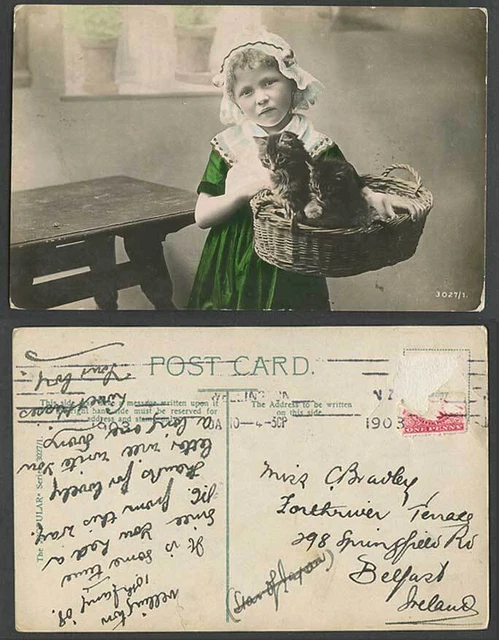 3027/1.
POST CARD.
This side may have message written upon it
right hand side must be reserved for
address and stamp
The Address to be written
on this side
The POPULAR Series 3027/1
WELLINGTON N Z
10-4-5CP
1903
ONE PENNY
Miss C Bradley
Forthriver Terrace
298 Springfield Rd
Belfast
Ireland
Wellington
10th Jany '08.
It is some time
since you had a
P.C. from this way.
Thanks for lovely
letter will write you
a long one